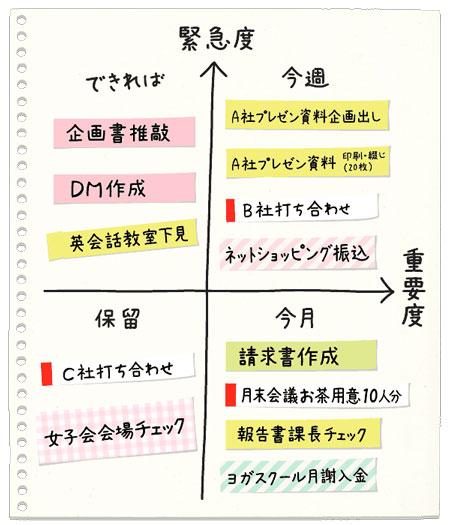 緊急度
できれば
今週
企画書推敲
DM作成
英会話教室下見
A社プレゼン資料企画出し
A社プレゼン資料 印刷・綴じ
(20枚)
B社打ち合わせ
ネットショッピング振込
重要度
保留
今月
C社打ち合わせ
女子会会場チェック
請求書作成
月末会議お茶用意10人分
報告書課長チェック
ヨガスクール月謝入金